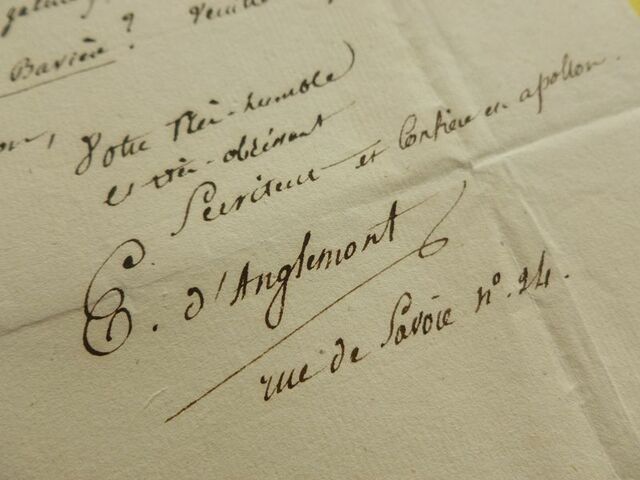 Bavière ? Veuille
Votre très-humble
et très-obéissant
Serviteur et Confrère en apollon.
E. d'Anglemont
rue de Savoie nº. 24.